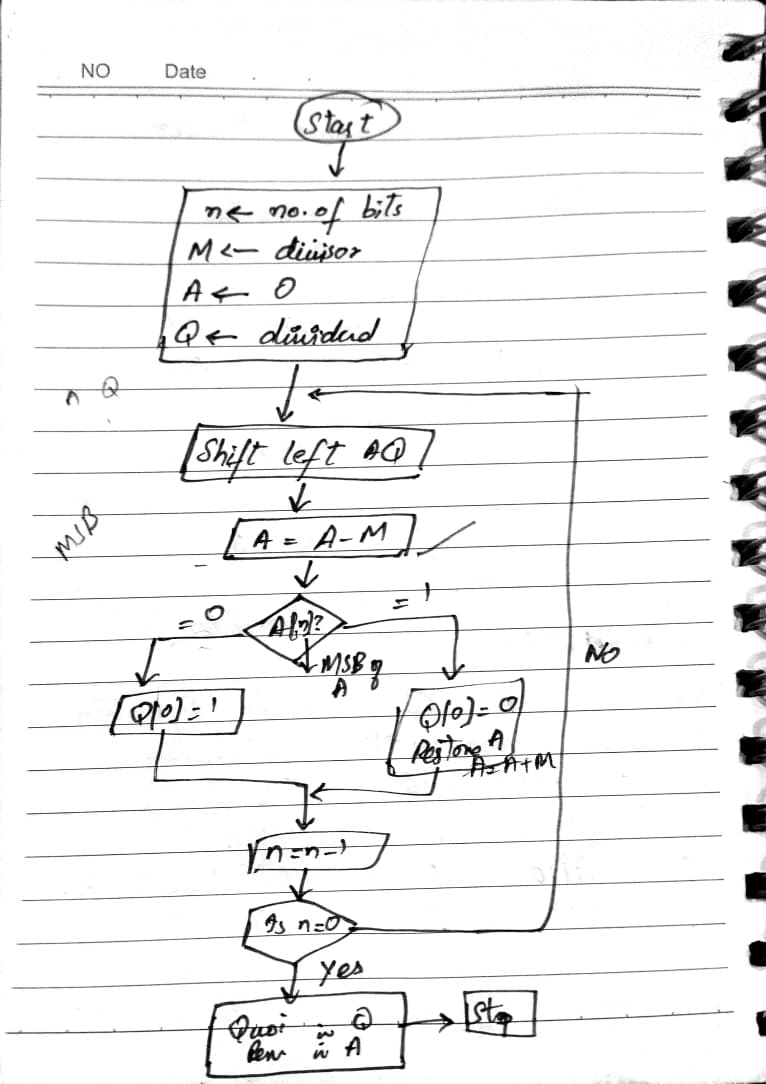 NO Date
Start
n ← no. of bits
M ← divisor
A ← 0
Q ← dividend
n Q
Shift left AQ
MSB
A = A - M
= 0
A[n]?
= 1
MSB of
A
NO
Q[0] = 1
Q[0] = 0
Restore A
A = A + M
n = n - 1
Is n = 0
Yes
Quoi in Q
Rem in A
Stop